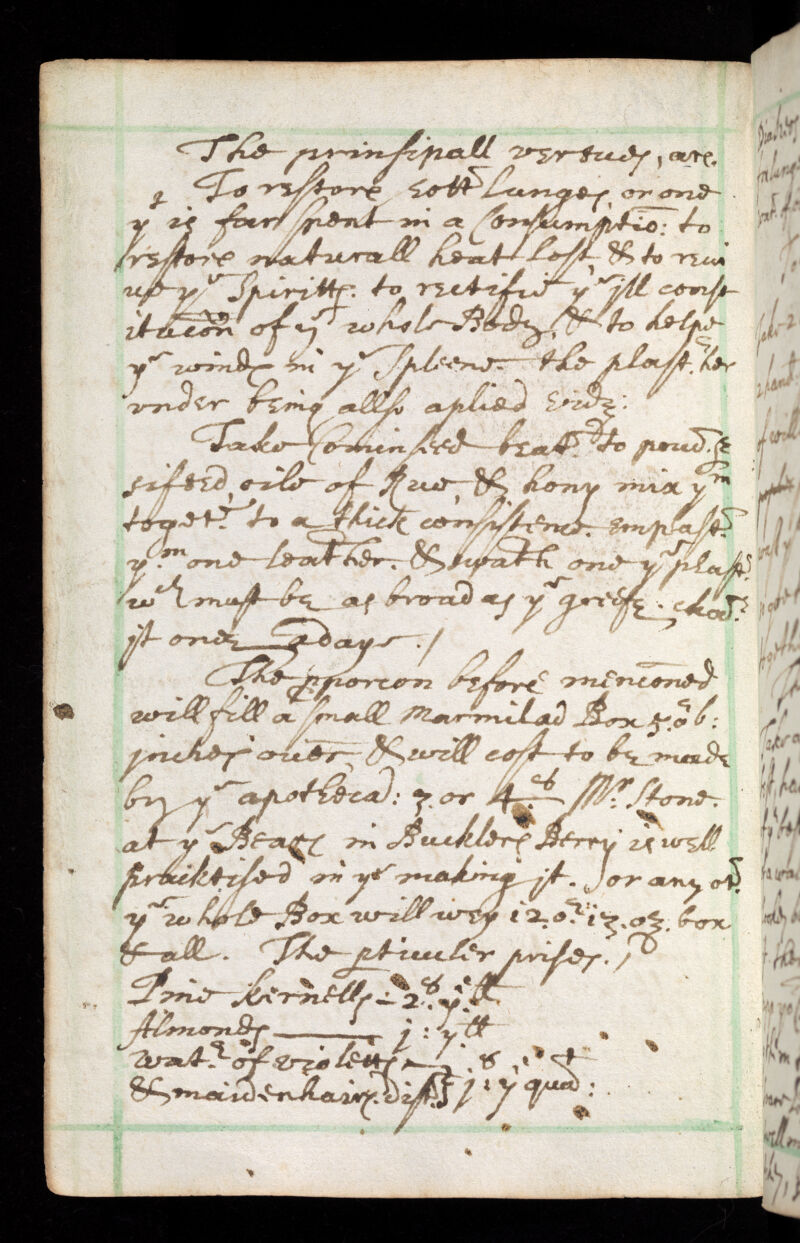 The prinsipall vertues, are.
To restore rott lunges, or one
yt is farr spent in a Consumptio: to
restore naturall heat lost, & to revi
ve ye Spiritts. to rectifie ye yll const
itucon of ye whole Body, & to helpe
ye winde in ye Spleene. the plastr her
vnder being allso aplied
Take Cominseed beatd to poudr
sifted, oile of Rue, & hony mix ym
togetr to a thick consistence. emplastr
ym one leather. & swath one ye plastr
wch must be as broad as ye greefe.
jt once a daye./
The pporcon before mencõned
will fill a small Marmilad Box 5. or 6:
jnches over, & will cost to be made
by ye apothecad: 3 or 4.s Mr. Stone.
at ye Beare in Bucklers Berry is well
pracktised in ye making jt. or any otr
ye whole Box will wey 12. or 13. oz. box
& all. The pticuler prises./
Pine kernells - 2s. ye ll
Almondes j: ye ll
watr of violetts
& maidenhaire dist j s: ye quad: